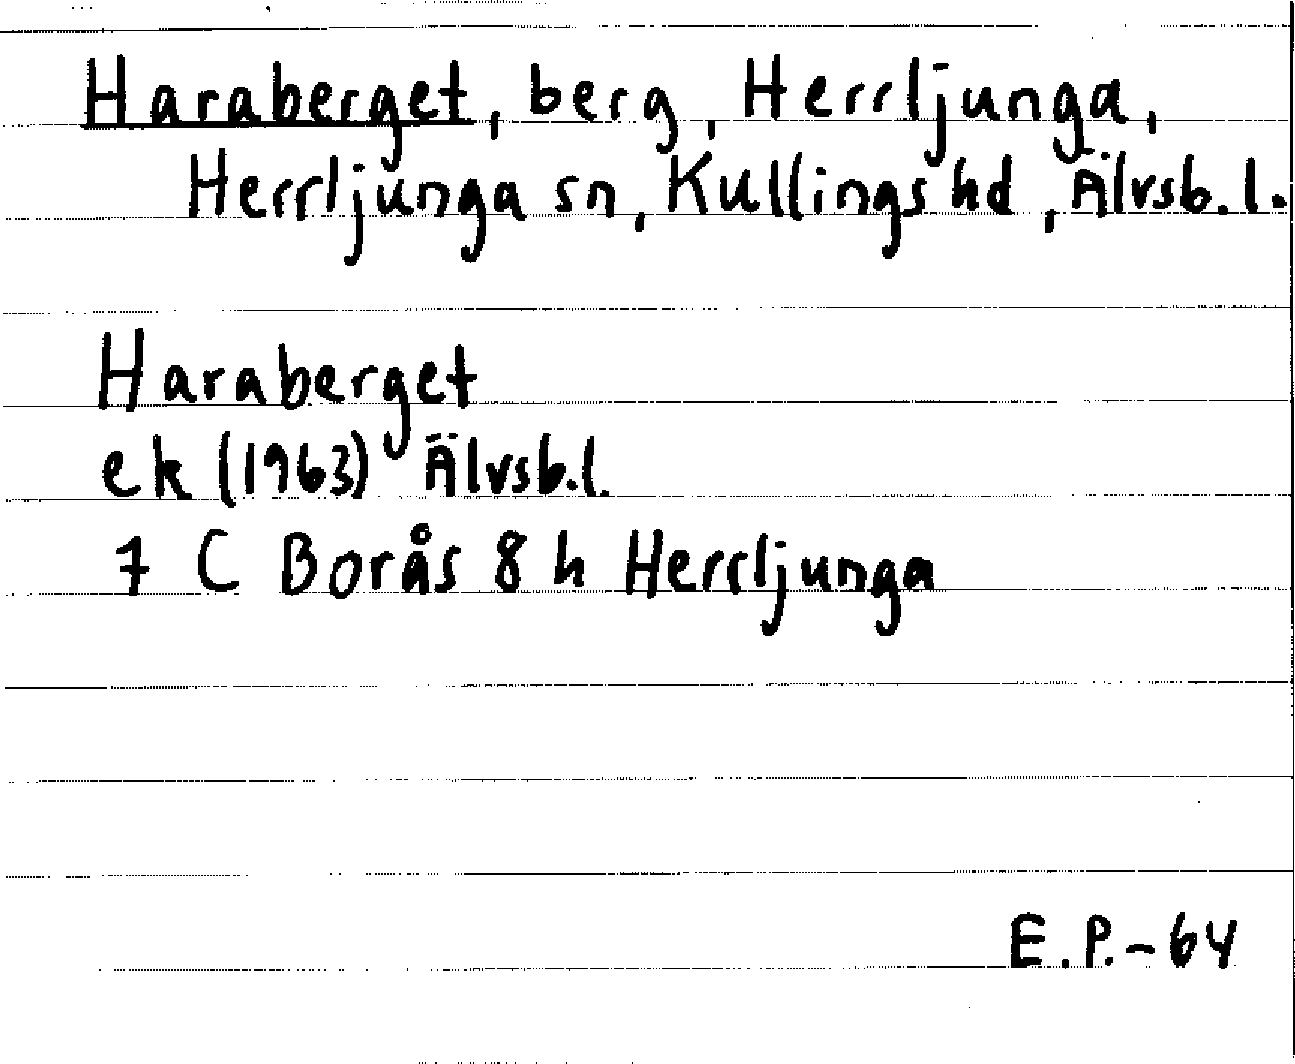 Haraberget, berg, Herrljunga,
Herrljunga sn, Kullings hd, Älvsb. l.
Haraberget
ek (1963) Älvsb.l.
7 C Borås 8 h Herrljunga
E.P.-64